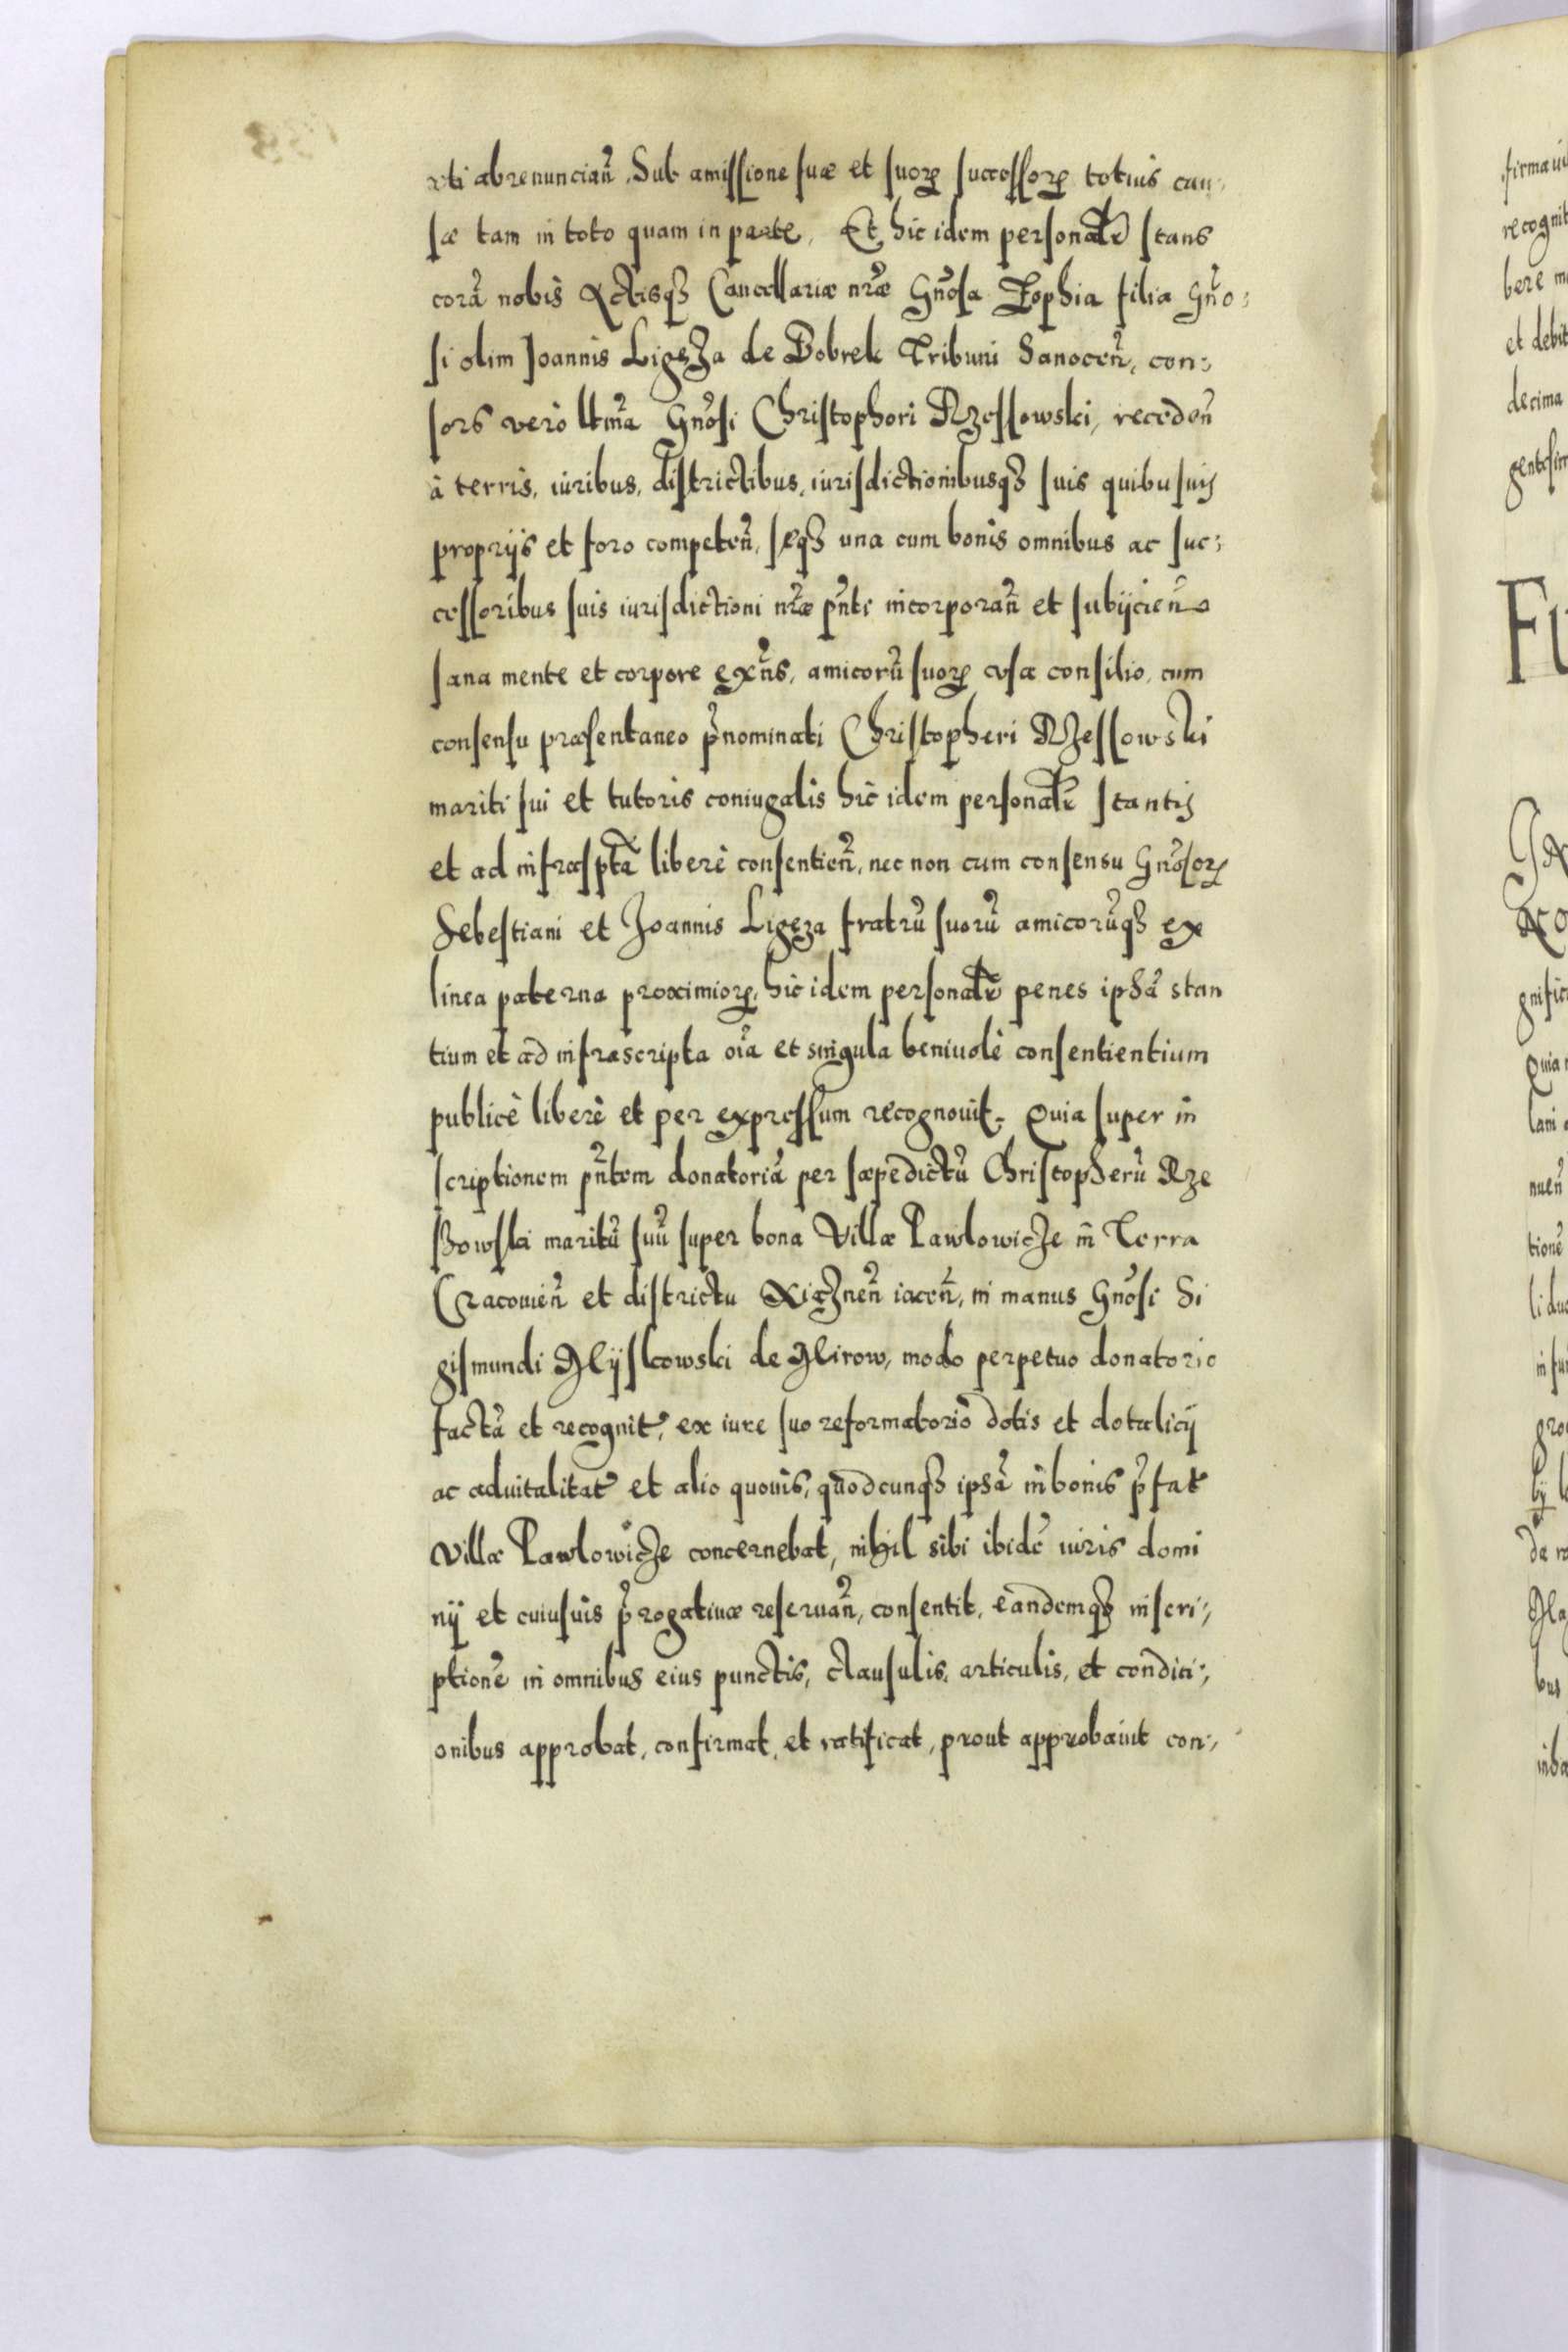 rti abrenuncian̄. Sub amissione suæ et suoꝝ successoꝝ totius cau-
sæ tam in toto quam in parte, Et hic idem personalr̄ stans
corā nobis Actisqꝫ Cancellariæ nr̄æ Gn̄osa Zophia filia Gn̄o-
si olim Joannis Ligęza de Bobrek Tribuni Sanocen̄, con-
sors verò ltm̄a Gn̄osi Christophori Rzessowski, receden̄
à terris, iuribus, districtibus, iurisdictionibusqꝫ suis quibusuis
proprijs et foro competen̄, seqꝫ una cum bonis omnibus ac suc-
cessoribus suis iurisdictioni nr̄æ pn̄te incorporan̄ et subijcien̄
sana mente et corpore exn̄s, amicorū suoꝝ usa consilio, cum
consensu præsentaneo p̄nominati Christopheri Rzessowski
mariti sui et tutoris coniugalis hic idem personalr̄ stantis
et ad infrasptā liberè consentien̄, nec non cum consensu Gn̄osoꝝ
Sebestiani et Joannis Ligęza fratrū suorū amicorūqꝫ ex
linea paterna proximioꝝ, hic idem personalr̄ penes ipsā stan
tium et ad infrascripta oīa et singula beniuolè consentientium
publicè liberè et per expressum recognouit. Quia super in
scriptionem pn̄tem donatoriā per sæpedictū Christopherū Rze
ssowski maritū suū super bona Villæ Pawlowicze in Terra
Cracouien̄ et districtu Xiąznen̄ iacen̄, in manus Gn̄osi Si
gismundi Myskowski de Mirow, modo perpetuo donatorio
factā et recognit̄, ex iure suo reformatorio dotis et dotalicij
ac aduitalitat̄ et alio quouis, quodcunqꝫ ipsā in bonis p̄fat̄
Villæ Pawlowicze concernebat, nihil sibi ibidē iuris domi
nij et cuiusuis p̄rogatiuæ reseruan̄, consentit, eandemqꝫ inscri-
ptionē in omnibus eius punctis, clausulis, articulis, et conditi-
onibus approbat, confirmat, et ratificat, prout approbauit con-